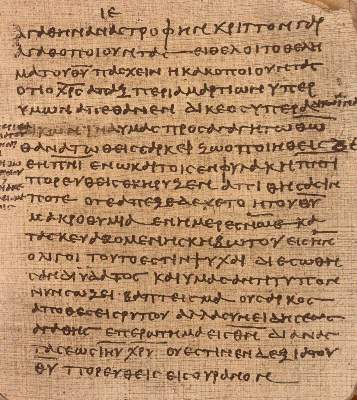 ΙΕ
ΑΓΑΘΗΝ ΑΝΑΣΤΡΟΦΗΝ ΚΡΙΠΤΟΝ ΓΑΡ
ΑΓΑΘΟΠΟΙΟΥΝΤΑΣ ΕΙ ΘΕΛΟΙ ΤΟ ΘΕΛΗ
ΜΑ ΤΟΥ ΘΥ ΠΑΣΧΕΙΝ Η ΚΑΚΟΠΟΙΟΥΝΤΑΣ
ΟΤΙ Ο ΧΡΣ ΑΠΑΞ ΠΕΡΙ ΑΜΑΡΤΙΩΝ ΥΠΕΡ
ΥΜΩΝ ΑΠΕΘΑΝΕΝ ΔΙΚΕΟΣ ΥΠΕΡ
ΥΜΑΣ ΠΡΟΣΑΓΑΓΗ ΤΩ ΘΩ
ΘΑΝΑΤΩΘΕΙΣ ΣΑΡΚΕΙ ΖΩΟΠΟΙΗΘΕΙΣ ΔΕ
ΕΝ ΠΝΙ ΕΝ Ω ΚΑΙ ΤΟΙΣ ΕΝ ΦΥΛΑΚΗ ΠΝΙ
ΠΟΡΕΥΘΕΙΣ ΕΚΗΡΥΞΕΝ ΑΠΙΘΗΣΑΣΙΝ
ΠΟΤΕ ΟΤΕ ΑΠΕΞΕΔΕΧΕΤΟ Η ΤΟΥ ΘΥ
ΜΑΚΡΟΘΥΜΙΑ ΕΝ ΗΜΕΡΕΣ ΝΩΕ ΚΑ
ΤΑΣΚΕΥΑΖΟΜΕΝΗΣ ΚΗΒΩΤΟΥ ΕΙΣ ΗΝ
ΟΛΙΓΟΙ ΤΟΥΤΟ ΕΣΤΙΝ Η ΨΥΧΑΙ ΔΙΕΣΩΘΗ
ΣΑΝ ΔΙ ΥΔΑΤΟΣ ΚΑΙ ΥΜΑΣ ΑΝΤΙΤΥΠΟΝ
ΝΥΝ ΣΩΖΕΙ ΒΑΠΤΕΙΣΜΑ ΟΥ ΣΑΡΚΟΣ
ΑΠΟΘΕΣΕΙΣ ΡΥΠΟΥ ΑΛΛΑ ΣΥΝΕΙΔΗΣΕΩΣ
ΑΓΑΘΗΣ ΕΠΕΡΩΤΗΜΑ ΕΙΣ ΘΝ ΔΙ ΑΝΑΣ
ΤΑΣΕΩΣ ΙΗΥ ΧΡΥ ΟΥ ΕΣΤΙΝ ΕΝ ΔΕΞΙΑ ΤΟΥ
ΘΥ ΠΟΡΕΥΘΕΙΣ ΕΙΣ ΟΥΡΑΝΟΝ